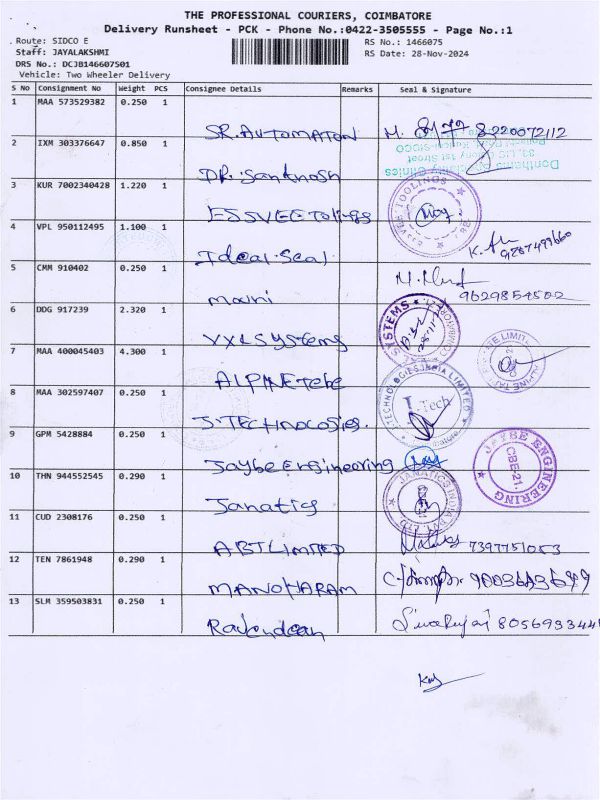 THE PROFESSIONAL COURIERS, COIMBATORE
Delivery Runsheet - PCK - Phone No.:0422-3505555 - Page No.:1
Route: SIDCO E
RS No.: 1466075
Staff: JAYALAKSHMI
RS Date: 28-Nov-2024
DRS No.: DCJB146607501
Vehicle: Two Wheeler Delivery
S No Consignment No Weight PCS Consignee Details Remarks Seal & Signature
1 MAA 573529382 0.250 1 SR.AUTOMATON 8220072112
2 IXM 303376647 0.850 1 DR.Santhosh
3 KUR 7002340428 1.220 1 ESSVEE Tolings
4 VPL 950112495 1.100 1 Ideal Seal
5 CMM 910402 0.250 1 mani 9629854502
6 DDG 917239 2.320 1 VXL SYstems SYSTEMS
7 MAA 400045403 4.300 1 ALPINE tube
8 MAA 302597407 0.250 1 J.TECHNOLOGIES. I-Tech
9 GPM 5428884 0.250 1 Jaybe Engineering JAYBE ENGINEERING CBE-21.
10 THN 944552545 0.290 1 Janatics
11 CUD 2308176 0.250 1 ABT LIMITED 7397751053
12 TEN 7861948 0.290 1 MANOHARAM
13 SLM 359503831 0.250 1